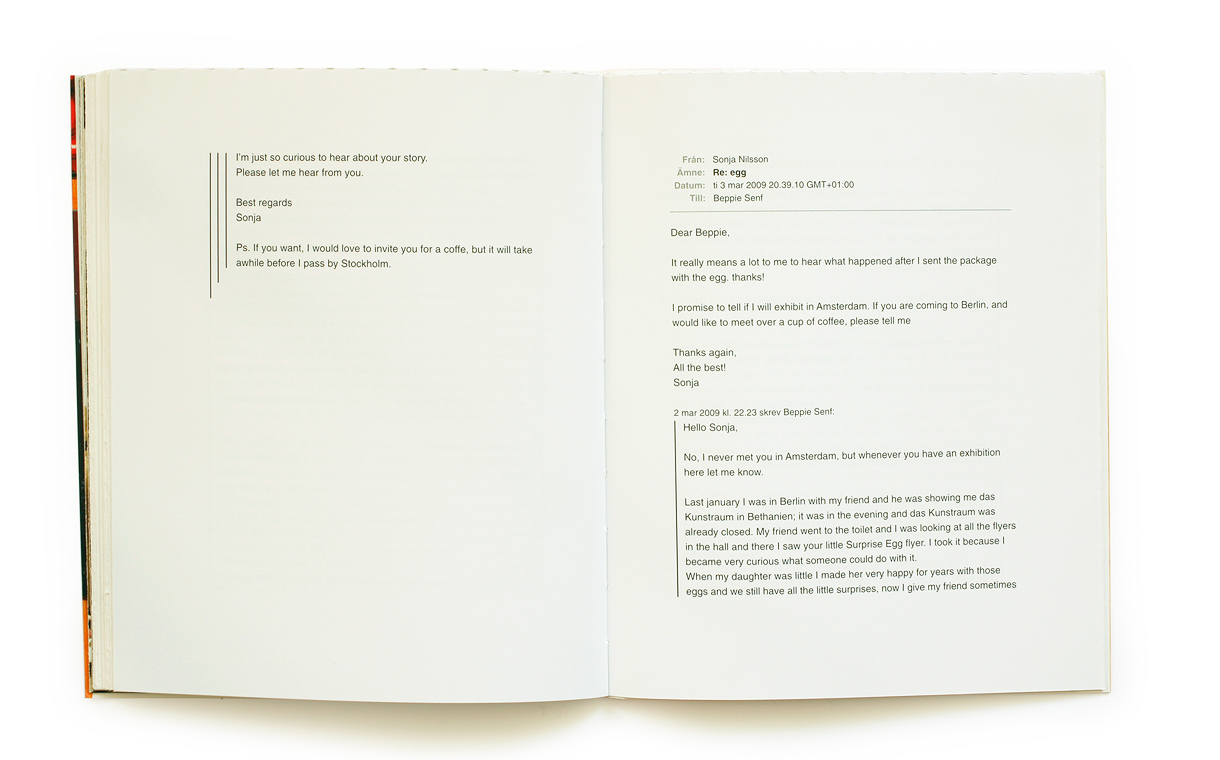 I'm just so curious to hear about your story.
Please let me hear from you.
Best regards
Sonja
Ps. If you want, I would love to invite you for a coffe, but it will take
awhile before I pass by Stockholm.
Från: Sonja Nilsson
Ämne: Re: egg
Datum: ti 3 mar 2009 20.39.10 GMT+01:00
Till: Beppie Senf
Dear Beppie,
It really means a lot to me to hear what happened after I sent the package
with the egg. thanks!
I promise to tell if I will exhibit in Amsterdam. If you are coming to Berlin, and
would like to meet over a cup of coffee, please tell me
Thanks again,
All the best!
Sonja
2 mar 2009 kl. 22.23 skrev Beppie Senf:
Hello Sonja,
No, I never met you in Amsterdam, but whenever you have an exhibition
here let me know.
Last january I was in Berlin with my friend and he was showing me das
Kunstraum in Bethanien; it was in the evening and das Kunstraum was
already closed. My friend went to the toilet and I was looking at all the flyers
in the hall and there I saw your little Surprise Egg flyer. I took it because I
became very curious what someone could do with it.
When my daughter was little I made her very happy for years with those
eggs and we still have all the little surprises, now I give my friend sometimes